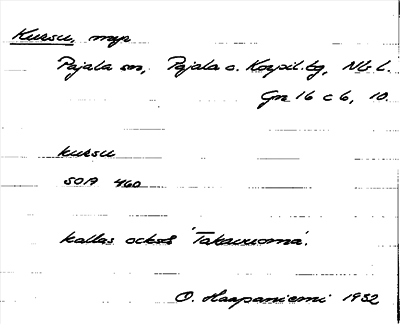 Kursu, myr
Pajala sn, Pajala o. Korpil. tg, Nb l.
Gn 16 c 6, 10.
kursu
SOA 460
kallas också 'Takavuoma'.
O. Haapaniemi 1932